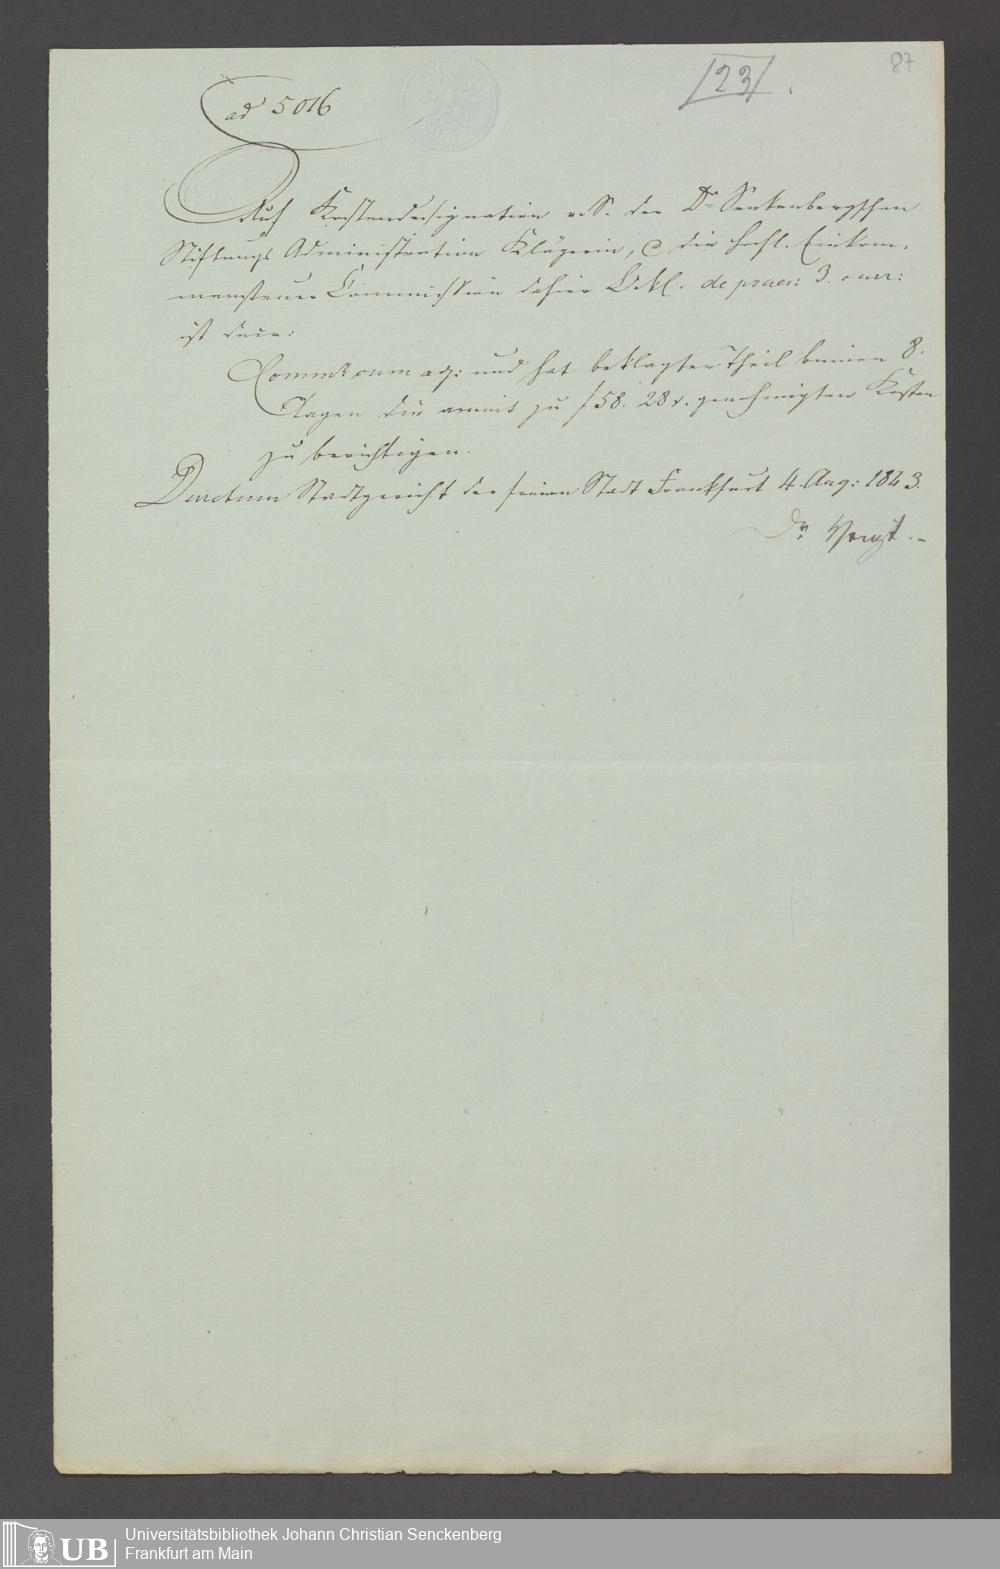 87
23
ad 5016
Auf Kostendesignation v. S. der Dr Senkenbergschen
Stiftungs Administration Klägerin, c die hochl. Einkom-
mensteuer Commission dahier Bekl. de praes: 3. curr:
ist decr:
Commcum aq: und hat beklagter Theil binnen 8.
Tagen die anmit zu f 58. 28 x. genehmigten Kosten
zu berichtigen.
Decretum Stadtgericht der freien Stadt Frankfurt 4. Aug: 1843.
Dr.
Universitätsbibliothek Johann Christian Senckenberg
Frankfurt am Main
UB